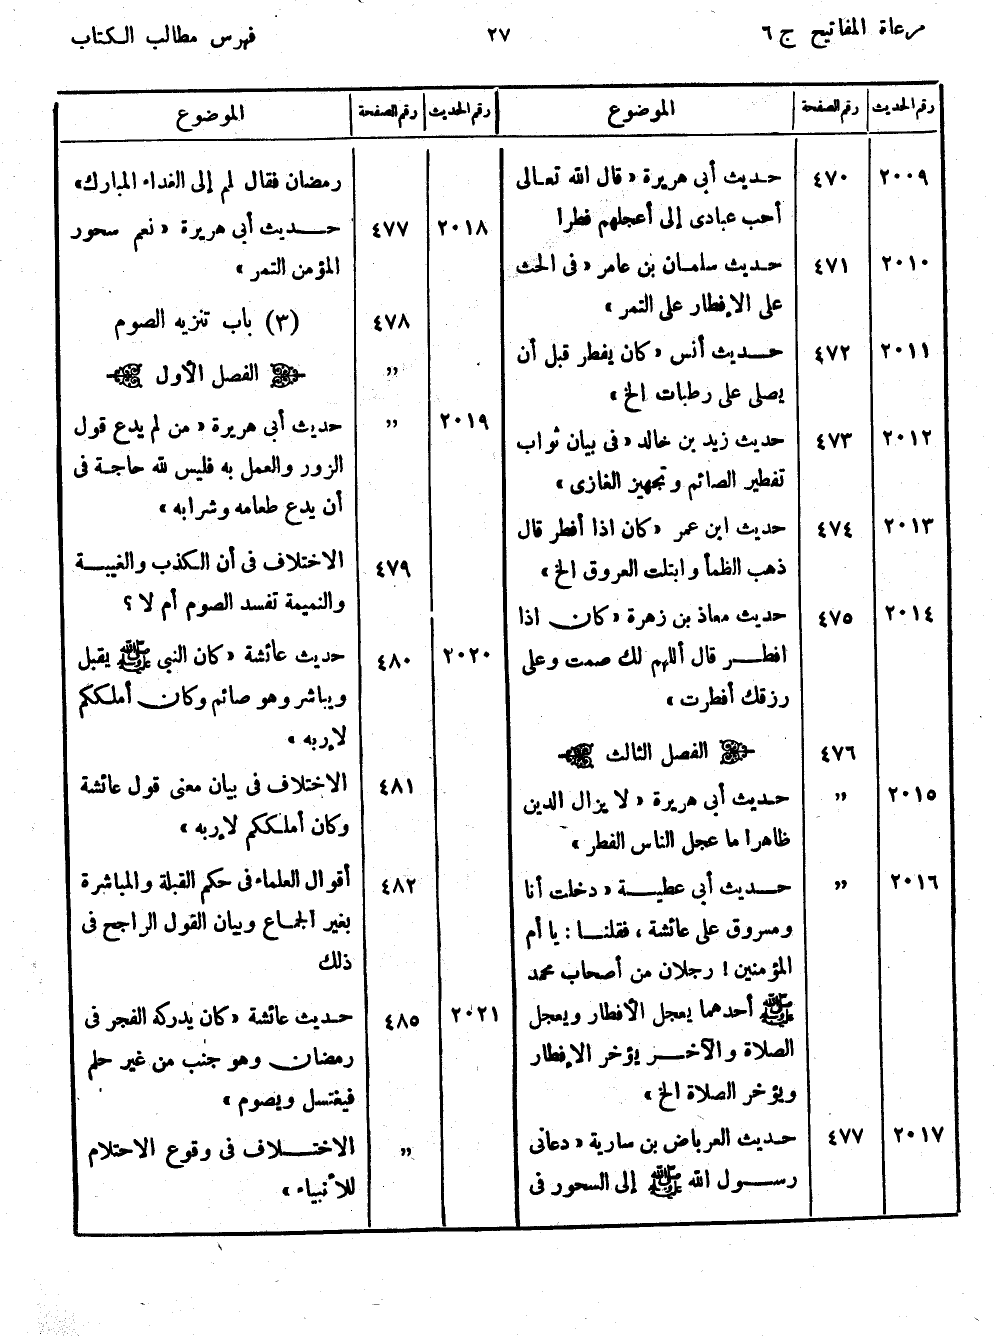 مرعاة المفاتيح ج ٦
٢٧
فهرس مطالب الكتاب
رقم الحديث رقم الصفحة الموضوع
٢٠٠٩ ٤٧٠ حديث أبى هريرة « قال الله تعالى
أحب عبادى إلى أعجلهم فطرا
٢٠١٠ ٤٧١ حديث سلمان بن عامر « فى الحث
على الإفطار على التمر »
٢٠١١ ٤٧٢ حديث أنس « كان يفطر قبل أن
يصلى على رطبات الخ »
٢٠١٢ ٤٧٣ حديث زيد بن خالد « فى بيان ثواب
تفطير الصائم وتجهيز الغازى »
٢٠١٣ ٤٧٤ حديث ابن عمر « كان اذا أفطر قال
ذهب الظمأ وابتلت العروق الخ »
٢٠١٤ ٤٧٥ حديث معاذ بن زهرة « كان اذا
افطر قال أللهم لك صمت وعلى
رزقك أفطرت »
٤٧٦ الفصل الثالث
٢٠١٥ ,, حديث أبى هريرة « لا يزال الدين
ظاهرا ما عجل الناس الفطر »
٢٠١٦ ,, حديث أبى عطية « دخلت أنا
ومسروق على عائشة ، فقلنا : يا أم
المؤمنين ! رجلان من أصحاب محمد
ﷺ أحدهما يعجل الأفطار ويعجل
الصلاة والآخر يؤخر الإفطار
ويؤخر الصلاة الخ »
٢٠١٧ ٤٧٧ حديث العرباض بن سارية « دعانى
رسول الله ﷺ إلى السحور فى
رقم الحديث رقم الصفحة الموضوع
رمضان فقال لم إلى الغداء المبارك»
٢٠١٨ ٤٧٧ حديث أبى هريرة « نعم سحور
المؤمن التمر »
٤٧٨ (٣) باب تنزيه الصوم
,, الفصل الأول
٢٠١٩ ,, حديث أبى هريرة « من لم يدع قول
الزور والعمل به فليس لله حاجة فى
أن يدع طعامه وشرابه »
٤٧٩ الاختلاف فى أن الكذب والغيبة
والنميمة تفسد الصوم أم لا ؟
٢٠٢٠ ٤٨٠ حديث عائشة « كان النبى ﷺ يقبل
ويباشر وهو صائم وكان أملككم
لإربه »
٤٨١ الاختلاف فى بيان معنى قول عائشة
وكان أملككم لإربه »
٤٨٢ أقوال العلماء فى حكم القبلة والمباشرة
بغير الجماع وبيان القول الراجح فى
ذلك
٢٠٢١ ٤٨٥ حديث عائشة « كان يدركه الفجر فى
رمضان وهو جنب من غير حلم
فيغتسل ويصوم »
,, الاختلاف فى وقوع الاحتلام
للأنبياء »